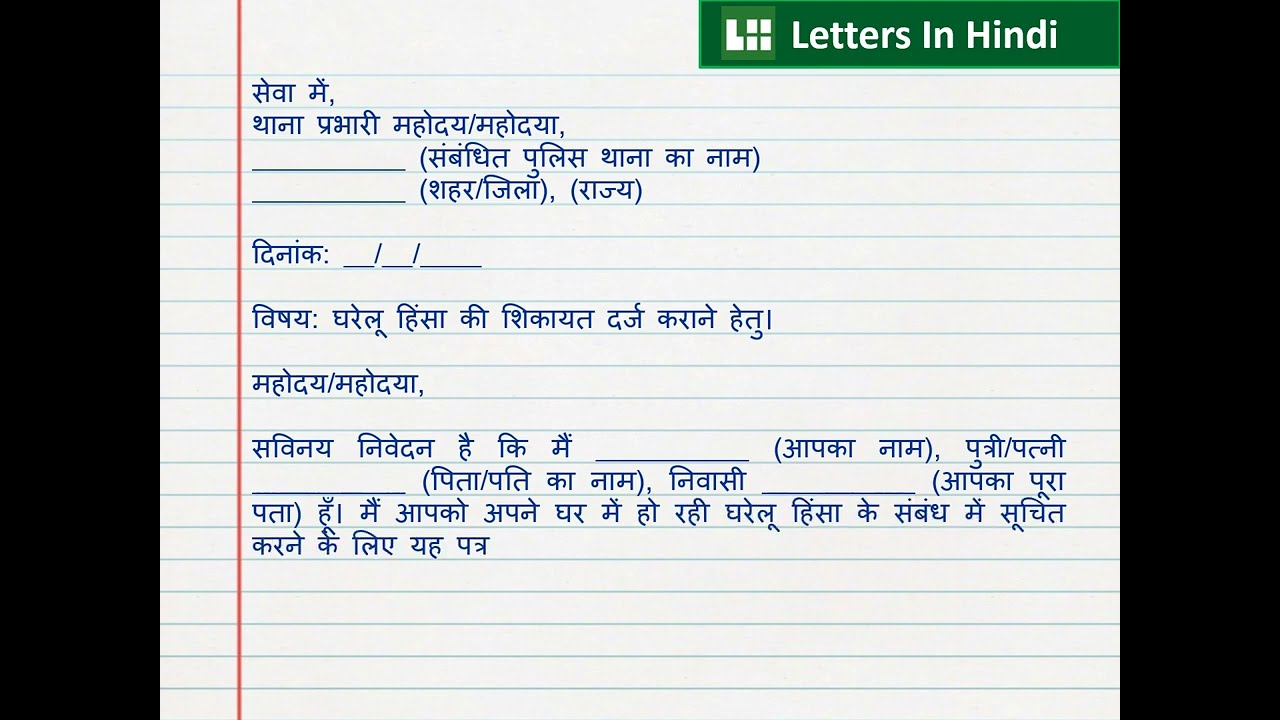 Letters In Hindi
सेवा में,
थाना प्रभारी महोदय/महोदया,
__________ (संबंधित पुलिस थाना का नाम)
__________ (शहर/जिला), (राज्य)
दिनांक: __/__/____
विषय: घरेलू हिंसा की शिकायत दर्ज कराने हेतु।
महोदय/महोदया,
सविनय निवेदन है कि मैं __________ (आपका नाम), पुत्री/पत्नी
__________ (पिता/पति का नाम), निवासी __________ (आपका पूरा
पता) हूँ। मैं आपको अपने घर में हो रही घरेलू हिंसा के संबंध में सूचित
करने के लिए यह पत्र